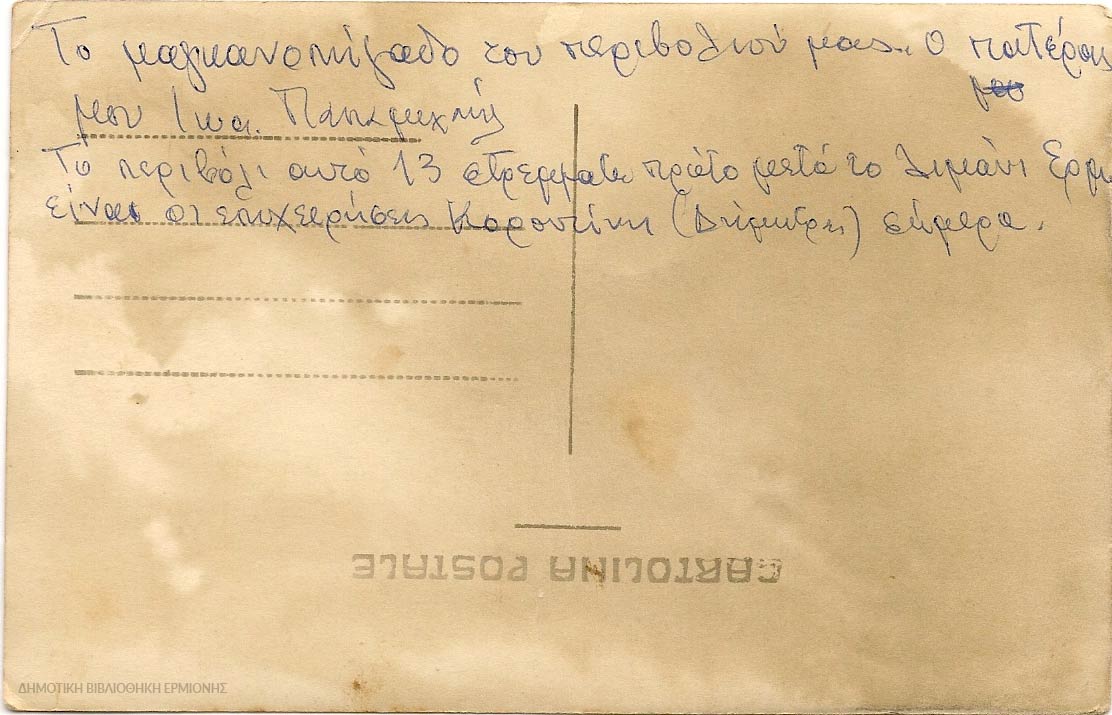 Το μαγκανοπήγαδο του περιβολιού μας.. Ο πατέρας
μου Ιωα. Παπαμιχαήλ
Τό περιβόλι αυτό 13 στρεμματα πρώτο μετά το Λιμάνι Ερμι
είναι οι επιχειρήσεις (Δημήτρη) σήμερα.
CARTOLINA POSTALE
ΔΗΜΟΤΙΚΗ ΒΙΒΛΙΟΘΗΚΗ ΕΡΜΙΟΝΗΣ